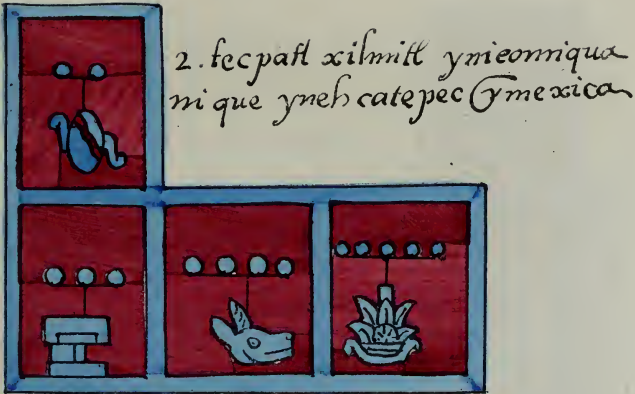 2. tecpatl xihuitl ynic onmiqua
nique ynehcatepec ỹ mexica